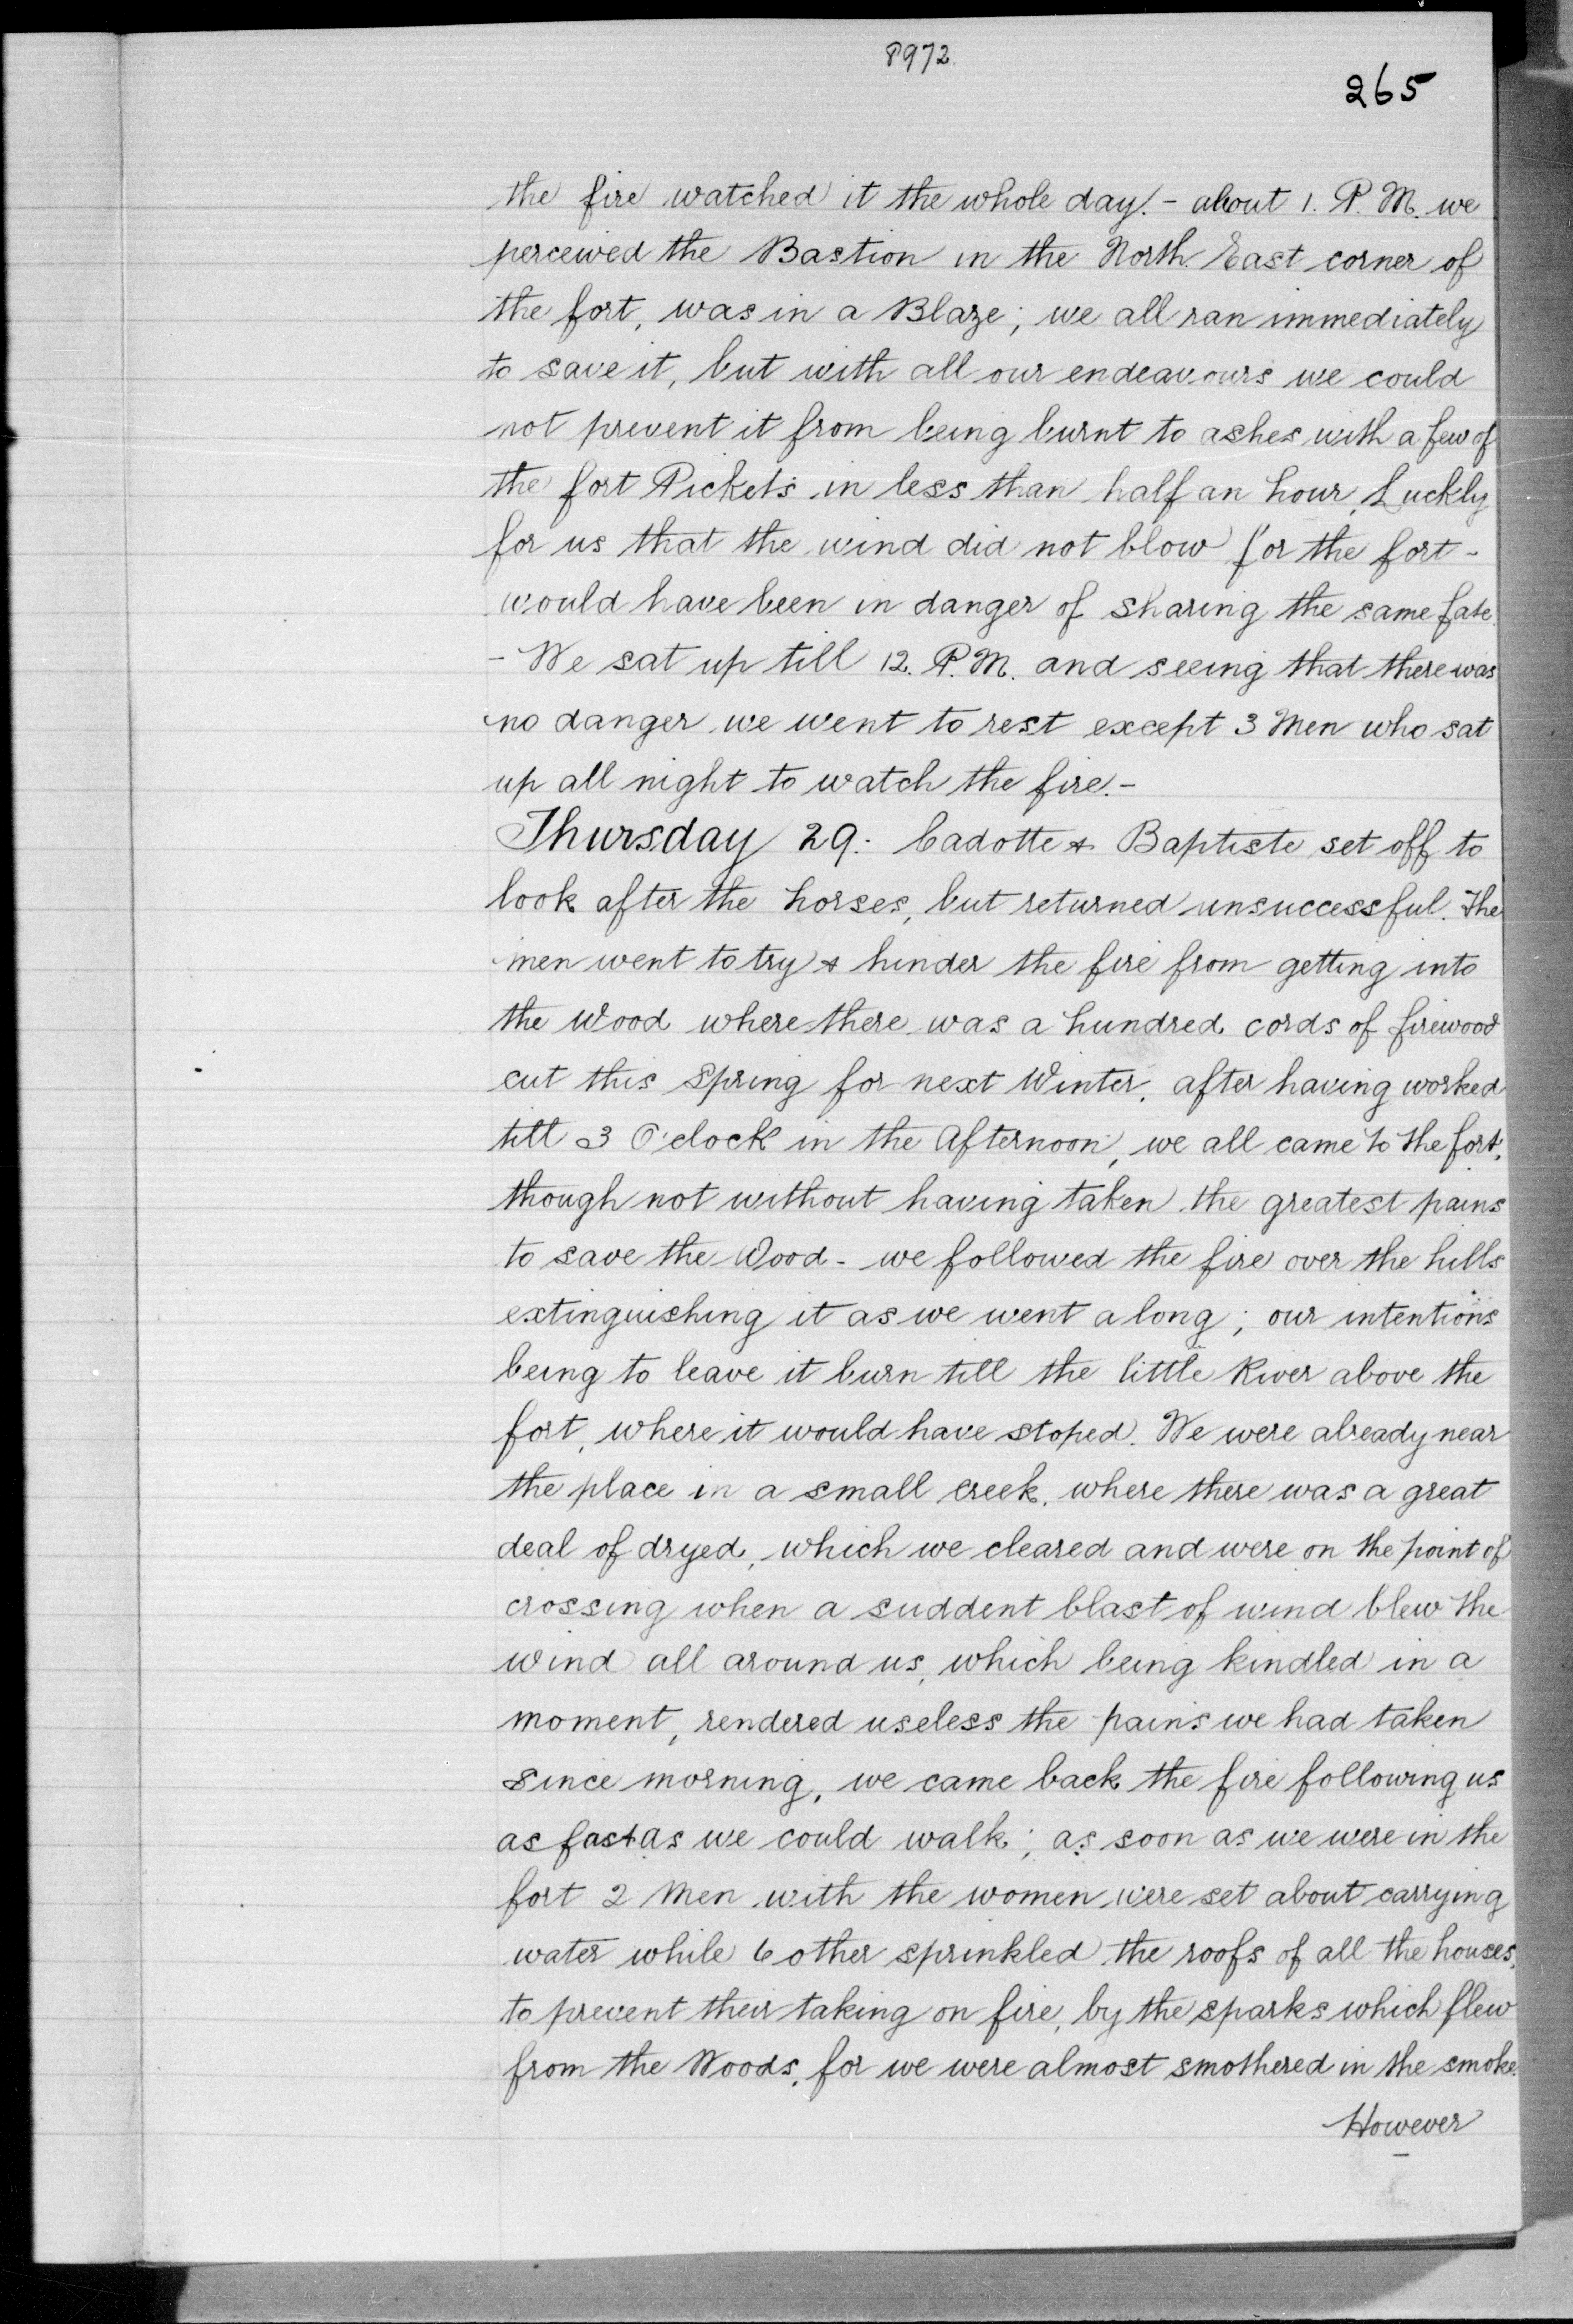 8972.
265
the fire watched it the whole day. - about 1. P. M. we
perceived the Bastion in the North. East corner of
the fort, was in a Blaze; we all ran immediately
to save it, but with all our endeavours we could
not prevent it from being burnt to ashes with a few of
the fort Pickets in less than half an hour, Luckly
for us that the wind did not blow for the fort -
would have been in danger of sharing the same fate.
- We sat up till 12. P. M. and seeing that there was
no danger we went to rest except 3 Men who sat
up all night to watch the fire. -
Thursday 29. Cadotte & Baptiste set off to
look after the horses, but returned unsuccessful. The
men went to try & hinder the fire from getting into
the Wood where there was a hundred cords of firewood
cut this Spring for next Winter. after having worked
till 3 O'clock in the Afternoon, we all came to the fort,
though not without having taken the greatest pains
to save the Wood - we followed the fire over the hills
extinguishing it as we went along; our intentions
being to leave it burn till the little River above the
fort, where it would have stoped. We were already near
the place in a small creek, where there was a great
deal of dryed, which we cleared and were on the point of
crossing when a suddent blast of wind blew the
wind all around us, which being kindled in a
moment, rendered useless the pains we had taken
since morning, we came back the fire following us
as fast as we could walk; as soon as we were in the
fort 2 Men with the women were set about carrying
water while 6 other sprinkled the roofs of all the houses,
to prevent their taking on fire, by the sparks which flew
from the Woods, for we were almost smothered in the smoke.
However